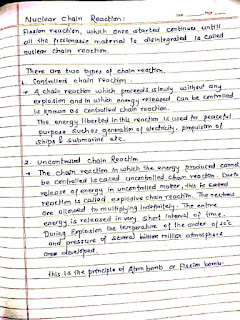 Date Page
Nuclear Chain Reaction:
Fission reaction, which once started continues until
all the fissionable material is disintegrated is called
nuclear chain reaction.
There are two types of chain reaction.
1. Controlled chain reaction :-
→ A chain reaction which proceeds slowly without any
explosion and in which energy released can be controlled
is known as controlled chain reaction.
The energy liberated in this reaction is used for peaceful
purpose such as generation of electricity, propulsion of
ships & submarine etc.
2. uncontrolled Chain Reaction
→ The chain reaction in which the energy produced cannot
be controlled is called uncontrolled chain reaction. Due to
release of energy in uncontrolled matter, this is
reaction is called explosive chain reaction. The neutrons
are allowed to multiplying indefinitely. The entire
energy is released in very short interval of time.
During Explosion the temperature of the order of
and pressure of several million atmosphere
are developed.
this is the principle of Atom bomb or Fission bomb.